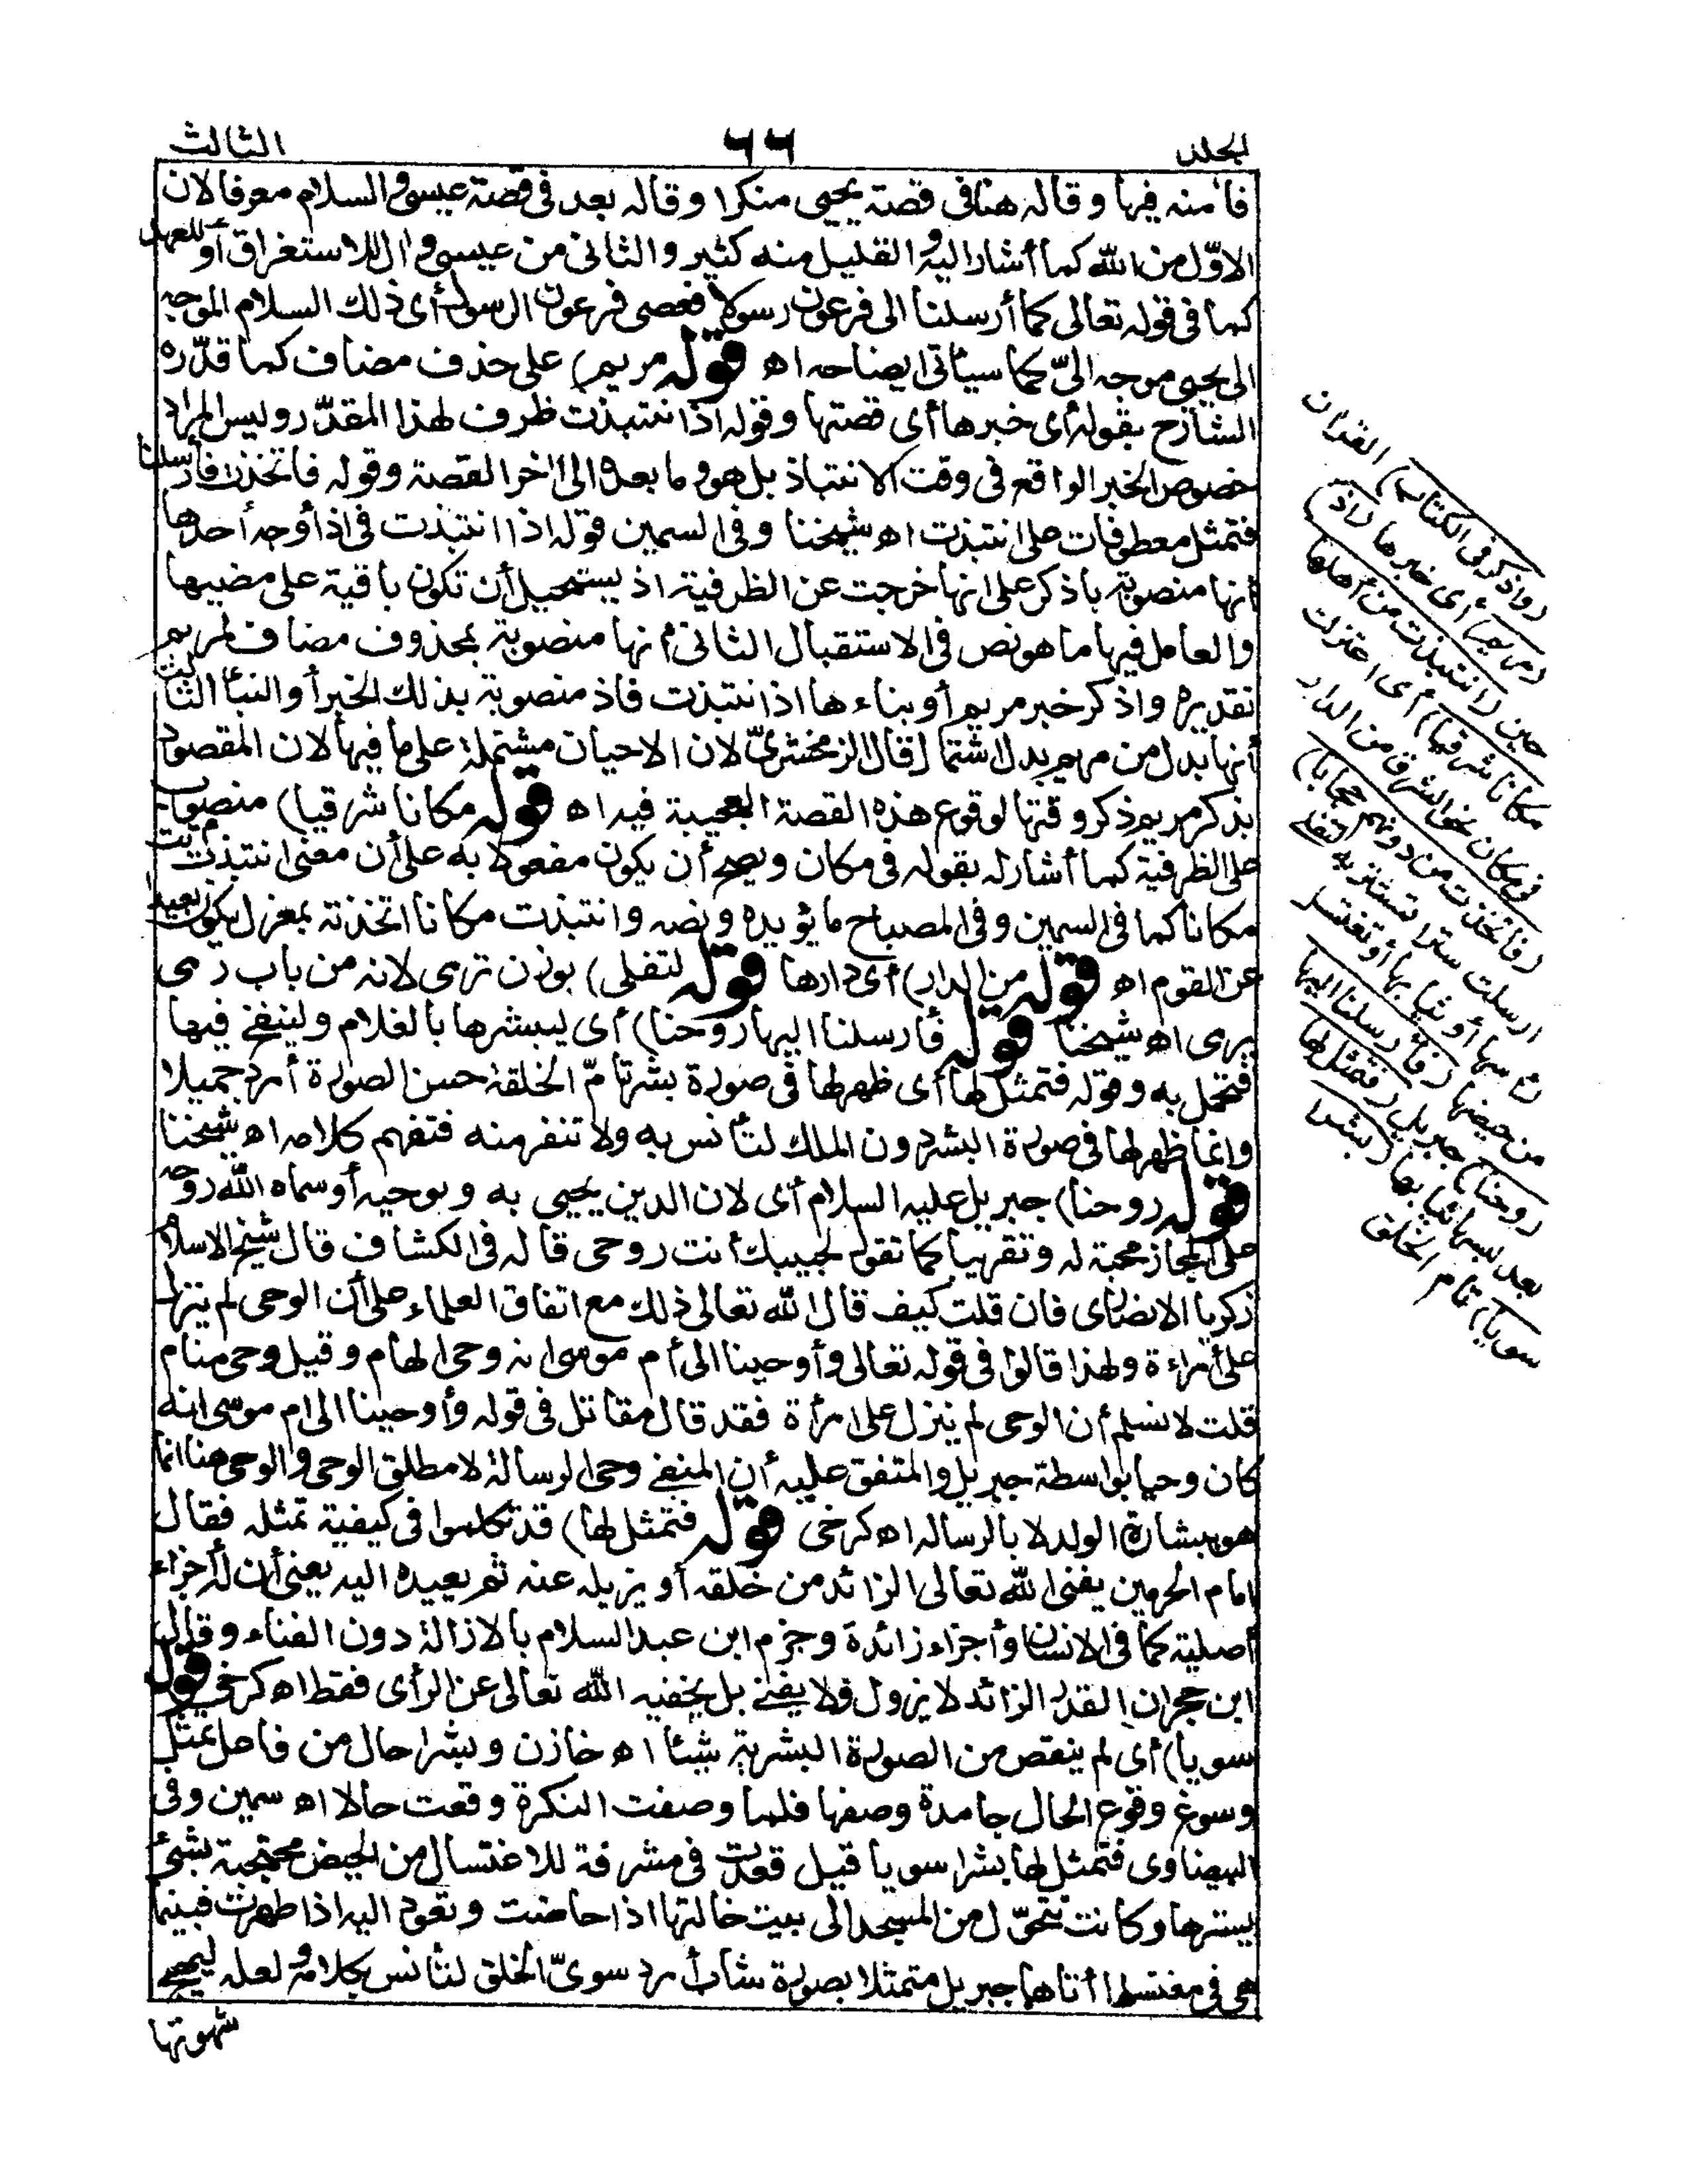 المجلد ٦٦ الثالث
فأمنه فيها وقاله هنا فى قصة يحيى منكرا وقاله بعد فى قصة عيسى والسلام معرفا لان
الاوّل من الله كما أشار اليه والقليل منه كثير والثانى من عيسى وال للاستغراق أو للعهد
كما فى قوله تعالى كما أرسلنا الى فرعون رسولا فعصى فرعون الرسول أى ذلك السلام الموجه
الى يحيى موجه الىّ كما سيأتى ايضاحه اه قوله مريم) على حذف مضاف كما قدّره
الشارح بقوله أى خبرها أى قصتها وقوله اذ انتبذت ظرف لهذا المقدّر وليس المراد
خصوص الخبر الواقع فى وقت الانتباذ بل هو وما بعده الى اخر القصة وقوله فاتخذت فأرسلنا
فتمثل معطوفات على انتبذت اه شيخنا وفى السمين قوله اذ انتبذت فى اذ أوجه أحدها
أنها منصوبة باذكر على انها خرجت عن الظرفية اذ يستحيل أن تكون باقية على مضيها
والعامل فيها ما هو نص فى الاستقبال الثانى أنها منصوبة بمحذوف مضاف لمريم
تقديره واذكر خبر مريم أو نباءها اذ انتبذت فاذ منصوبة بذلك الخبر أو النبأ الثالث
أنها بدل من مريم بدل اشتمال قال الزمخشرىّ لان الاحيان مشتملة على ما فيها لان المقصود
بذكر مريم ذكر وقتها لوقوع هذه القصة العجيبة فيه اه قوله مكانا شرقيا) منصوب
على الظرفية كما أشار له بقوله فى مكان ويصح أن يكون مفعولا به على أن معنى انتبذت أتت
مكانا كما فى السمين وفى المصباح ما يؤيده ونصه وانتبذت مكانا اتخذته بمعزل يكون بعيدا
عن القوم اه قوله من الدار) أى دارها قوله لتفلى) بوزن ترمى لانه من باب رمى
يرمى اه شيخنا قوله فأرسلنا اليها روحنا) أى ليبشرها بالغلام ولينفخ فيها
فتحمل به وقوله فتمثل لها أى ظهر لها فى صورة بشر تامّ الخلقة حسن الصورة أمرد جميلا
وانما ظهر لها فى صورة البشر دون الملك لتأنس به ولا تنفر منه فتفهم كلامه اه شيخنا
قوله روحنا) جبريل عليه السلام أى لان الدين يحيى به وبوحيه أو سماه الله روحه
على المجاز محبة له وتقريبا كما تقول لحبيبك أنت روحى قاله فى الكشاف قال شيخ الاسلام
زكريا الانصارى فان قلت كيف قال الله تعالى ذلك مع اتفاق العلماء على أن الوحى لم ينزل
على امراءة ولهذا قالوا فى قوله تعالى وأوحينا الى أم موسى انه وحى الهام وقيل وحى منام
قلت لا نسلم أن الوحى لم ينزل على امرأة فقد قال مقاتل فى قوله وأوحينا الى ام موسى انه
كان وحيا بواسطة جبريل والمتفق عليه أن المنفى وحى الرسالة لا مطلق الوحى والوحى هنا انما
هو بشارة الولد لا بالرسالة اه كرخى قوله فتمثل لها) قد تكلموا فى كيفية تمثله فقال
امام الحرمين يفنى الله تعالى الزائد من خلقه أو يزيله عنه ثم يعيده اليه يعنى أن له أجزاء
أصلية كما فى الانسان وأجزاء زائدة وجزم ابن عبد السلام بالازالة دون الفناء وقال
ابن حجر ان القدر الزائد لا يزول ولا يفنى بل يخفيه الله تعالى عن الرأى فقط اه كرخى قوله
سويا) أى لم ينقص من الصورة البشرية شيئا اه خازن وبشرا حال من فاعل تمثل
وسوغ وقوع الحال جامدة وصفها فلما وصفت النكرة وقعت حالا اه سمين وفى
البيضاوى فتمثل لها بشرا سويا قيل قعدت فى مشرفة للاغتسال من الحيض محتجبة بشئ
يسترها وكانت تتحوّل من المسجد الى بيت خالتها اذا حاضت وتعود اليه اذا طهرت فبينما
هى فى مغتسلها أتاها جبريل متمثلا بصورة شاب أمرد سوىّ الخلق لتأنس بكلامه ولعله ليهيج
شهوتها
(واذكر فى الكتاب) القران
(مريم) أى خبرها (اذ)
حين (انتبذت من أهلها
مكانا شرقيا) أى اعتزلت
فى مكان نحو الشرق من الدار
(فاتخذت من دونهم حجابا)
أرسلت سترا تستتر به لتفلى
رأسها أو ثيابها أو تغتسل
من حيضها (فأرسلنا اليها
روحنا) جبريل (فتمثل لها)
بعد لبسها ثيابها (بشرا
سويا) تام الخلق